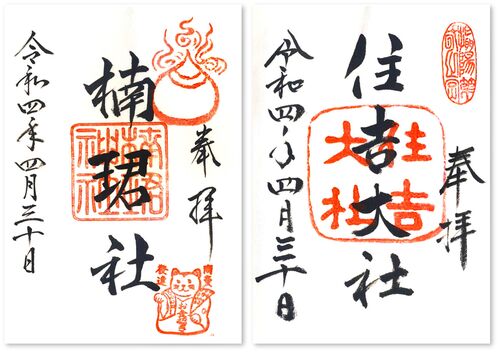 奉拝
楠珺社
楠珺社
令和四年四月三十日
奉拝
住吉大社
住吉大社
令和四年四月三十日